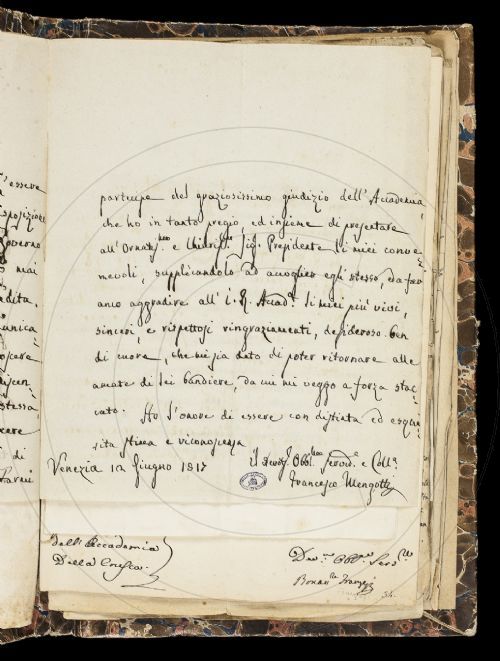 partecipe del graziosissimo giudizio dell'Accademia,
che ho in tanto pregio, ed insieme di presentare
all'Ornatis.mo e Chiaris.mo Sig. Presidente li miei conve-
nevoli, supplicandolo ad accogliere egli stesso, da far
anco aggradire all'I. R. Accad.a li miei più vivi,
sinceri, e rispettosi ringraziamenti, desideroso ben
di cuore, che mi sia dato di poter ritornare alle
amate di lei bandiere, da cui mi veggo a forza stac-
cato. Ho l'onore di essere con distinta ed esqui-
sita stima e riconoscenza
Venezia 12 Giugno 1817
Il Devot. Obbl.mo Servid.e e Coll.a
Francesco Mengotti
Dall'Accademia
Della Crusca
Dev.mo Obb.mo Serv.re
'essere
sposizione
Governo
mai
unica
stessa
di